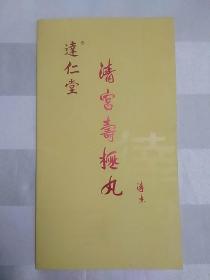 達仁堂
清宮壽桃丸